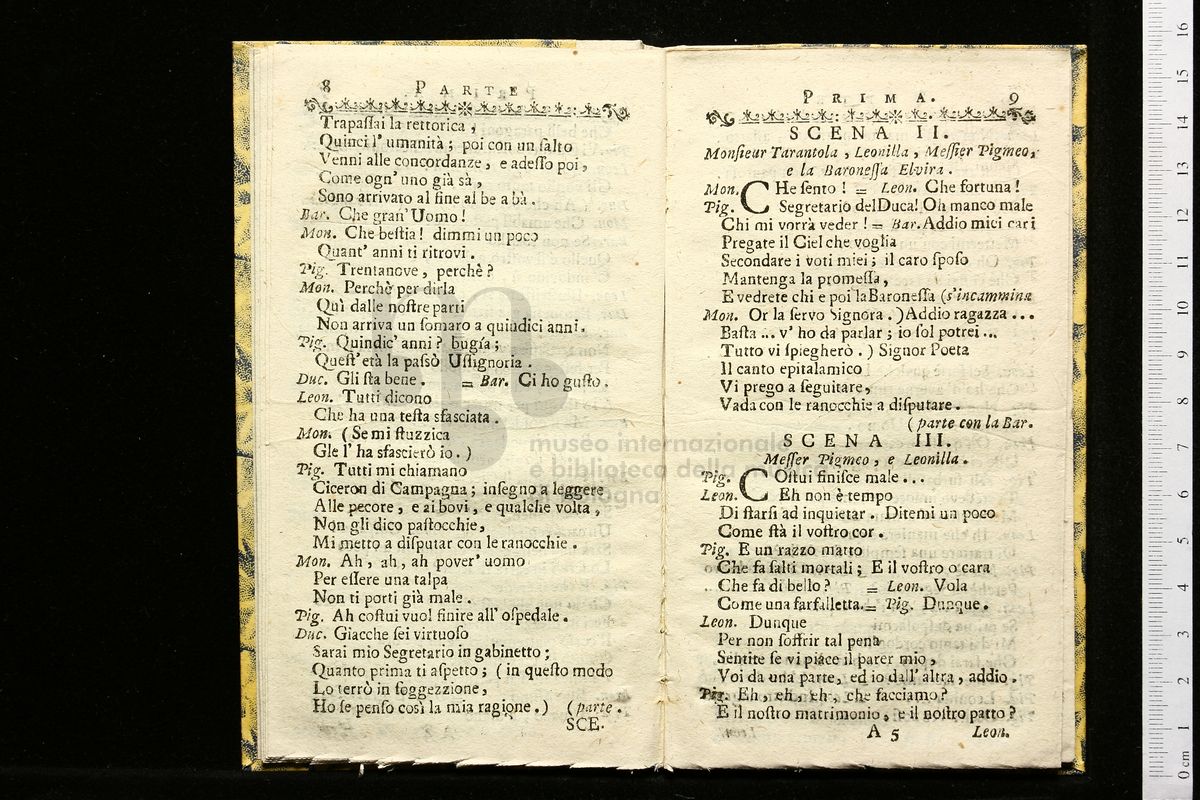 8 PARTE
Trapaſſai la rettorica,
Quinci l' umanità; poi con un ſalto
Venni alle concordanze, e adeſſo poi,
Come ogn' uno già sà,
Sono arrivato al fine al be a bà.
Bar. Che gran' Uomo!
Mon. Che beſtia! dimmi un poco
Quant' anni ti ritrovi.
Pig. Trentanove, perchè?
Mon. Perchè per dirla
Quì dalle noſtre parti
Non arriva un ſomaro a quindici anni.
Pig. Quindic' anni? bugía;
Queſt' età la paſsò Uſſignoria.
Duc. Gli ſta bene. = Bar. Ci ho guſto.
Leon. Tutti dicono
Che ha una teſta sfasciata.
Mon. (Se mi ſtuzzica
Gle l' ha sfascierò io.)
Pig. Tutti mi chiamano
Ciceron di Campagna; inſegno a leggere
Alle pecore, e ai bovi, e qualche volta,
Non gli dico paſtocchie,
Mi metto a diſputar con le ranocchie.
Mon. Ah, ah, ah pover' uomo
Per eſſere una talpa
Non ti porti già male.
Pig. Ah coſtui vuol finire all' oſpedale.
Duc. Giacche ſei virtuoſo
Sarai mio Segretario in gabinetto;
Quanto prima ti aſpetto; (in queſto modo
Lo terrò in ſoggezzione,
Ho ſe penſo così la mia ragione.) (parte.
SCE.
PRIMA. 9
SCENA II.
Monſieur Tarantola, Leonilla, Meſſier Pigmeo,
e la Baroneſſa Elvira.
Mon. CHe ſento! = Leon. Che fortuna!
Pig. Segretario del Duca! Oh manco male
Chi mi vorrà veder! = Bar. Addio mici cari
Pregate il Ciel che voglia
Secondare i voti miei; il caro ſpoſo
Mantenga la promeſſa,
E vedrete chi e poi la Baroneſſa (s'incammina
Mon. Or la ſervo Signora.) Addio ragazza ...
Baſta ... v' ho da parlar; io ſol potrei ...
Tutto vi ſpiegherò.) Signor Poeta
Il canto epitalamico
Vi prego a ſeguitare,
Vada con le ranocchie a diſputare.
(parte con la Bar.
SCENA III.
Meſſer Pigmeo, e Leonilla.
Pig. COſtui finiſce male ...
Leon. Eh non è tempo
Di ſtarſi ad inquietar. Ditemi un poco
Come ſtà il voſtro cor.
Pig. E un razzo matto
Che fa ſalti mortali; E il voſtro o cara
Che fa di bello? = Leon. Vola
Come una farfalletta. = Pig. Dunque.
Leon. Dunque
Per non ſoffrir tal pena
Sentite ſe vi piáce il parer mio,
Voi da una parte, ed io dall' altra, addio.
Pig. Eh, eh, eh, che facciamo?
E il noſtro matrimonio, e il noſtro patto?
A 5 Leon.
museo internazionale
e biblioteca della